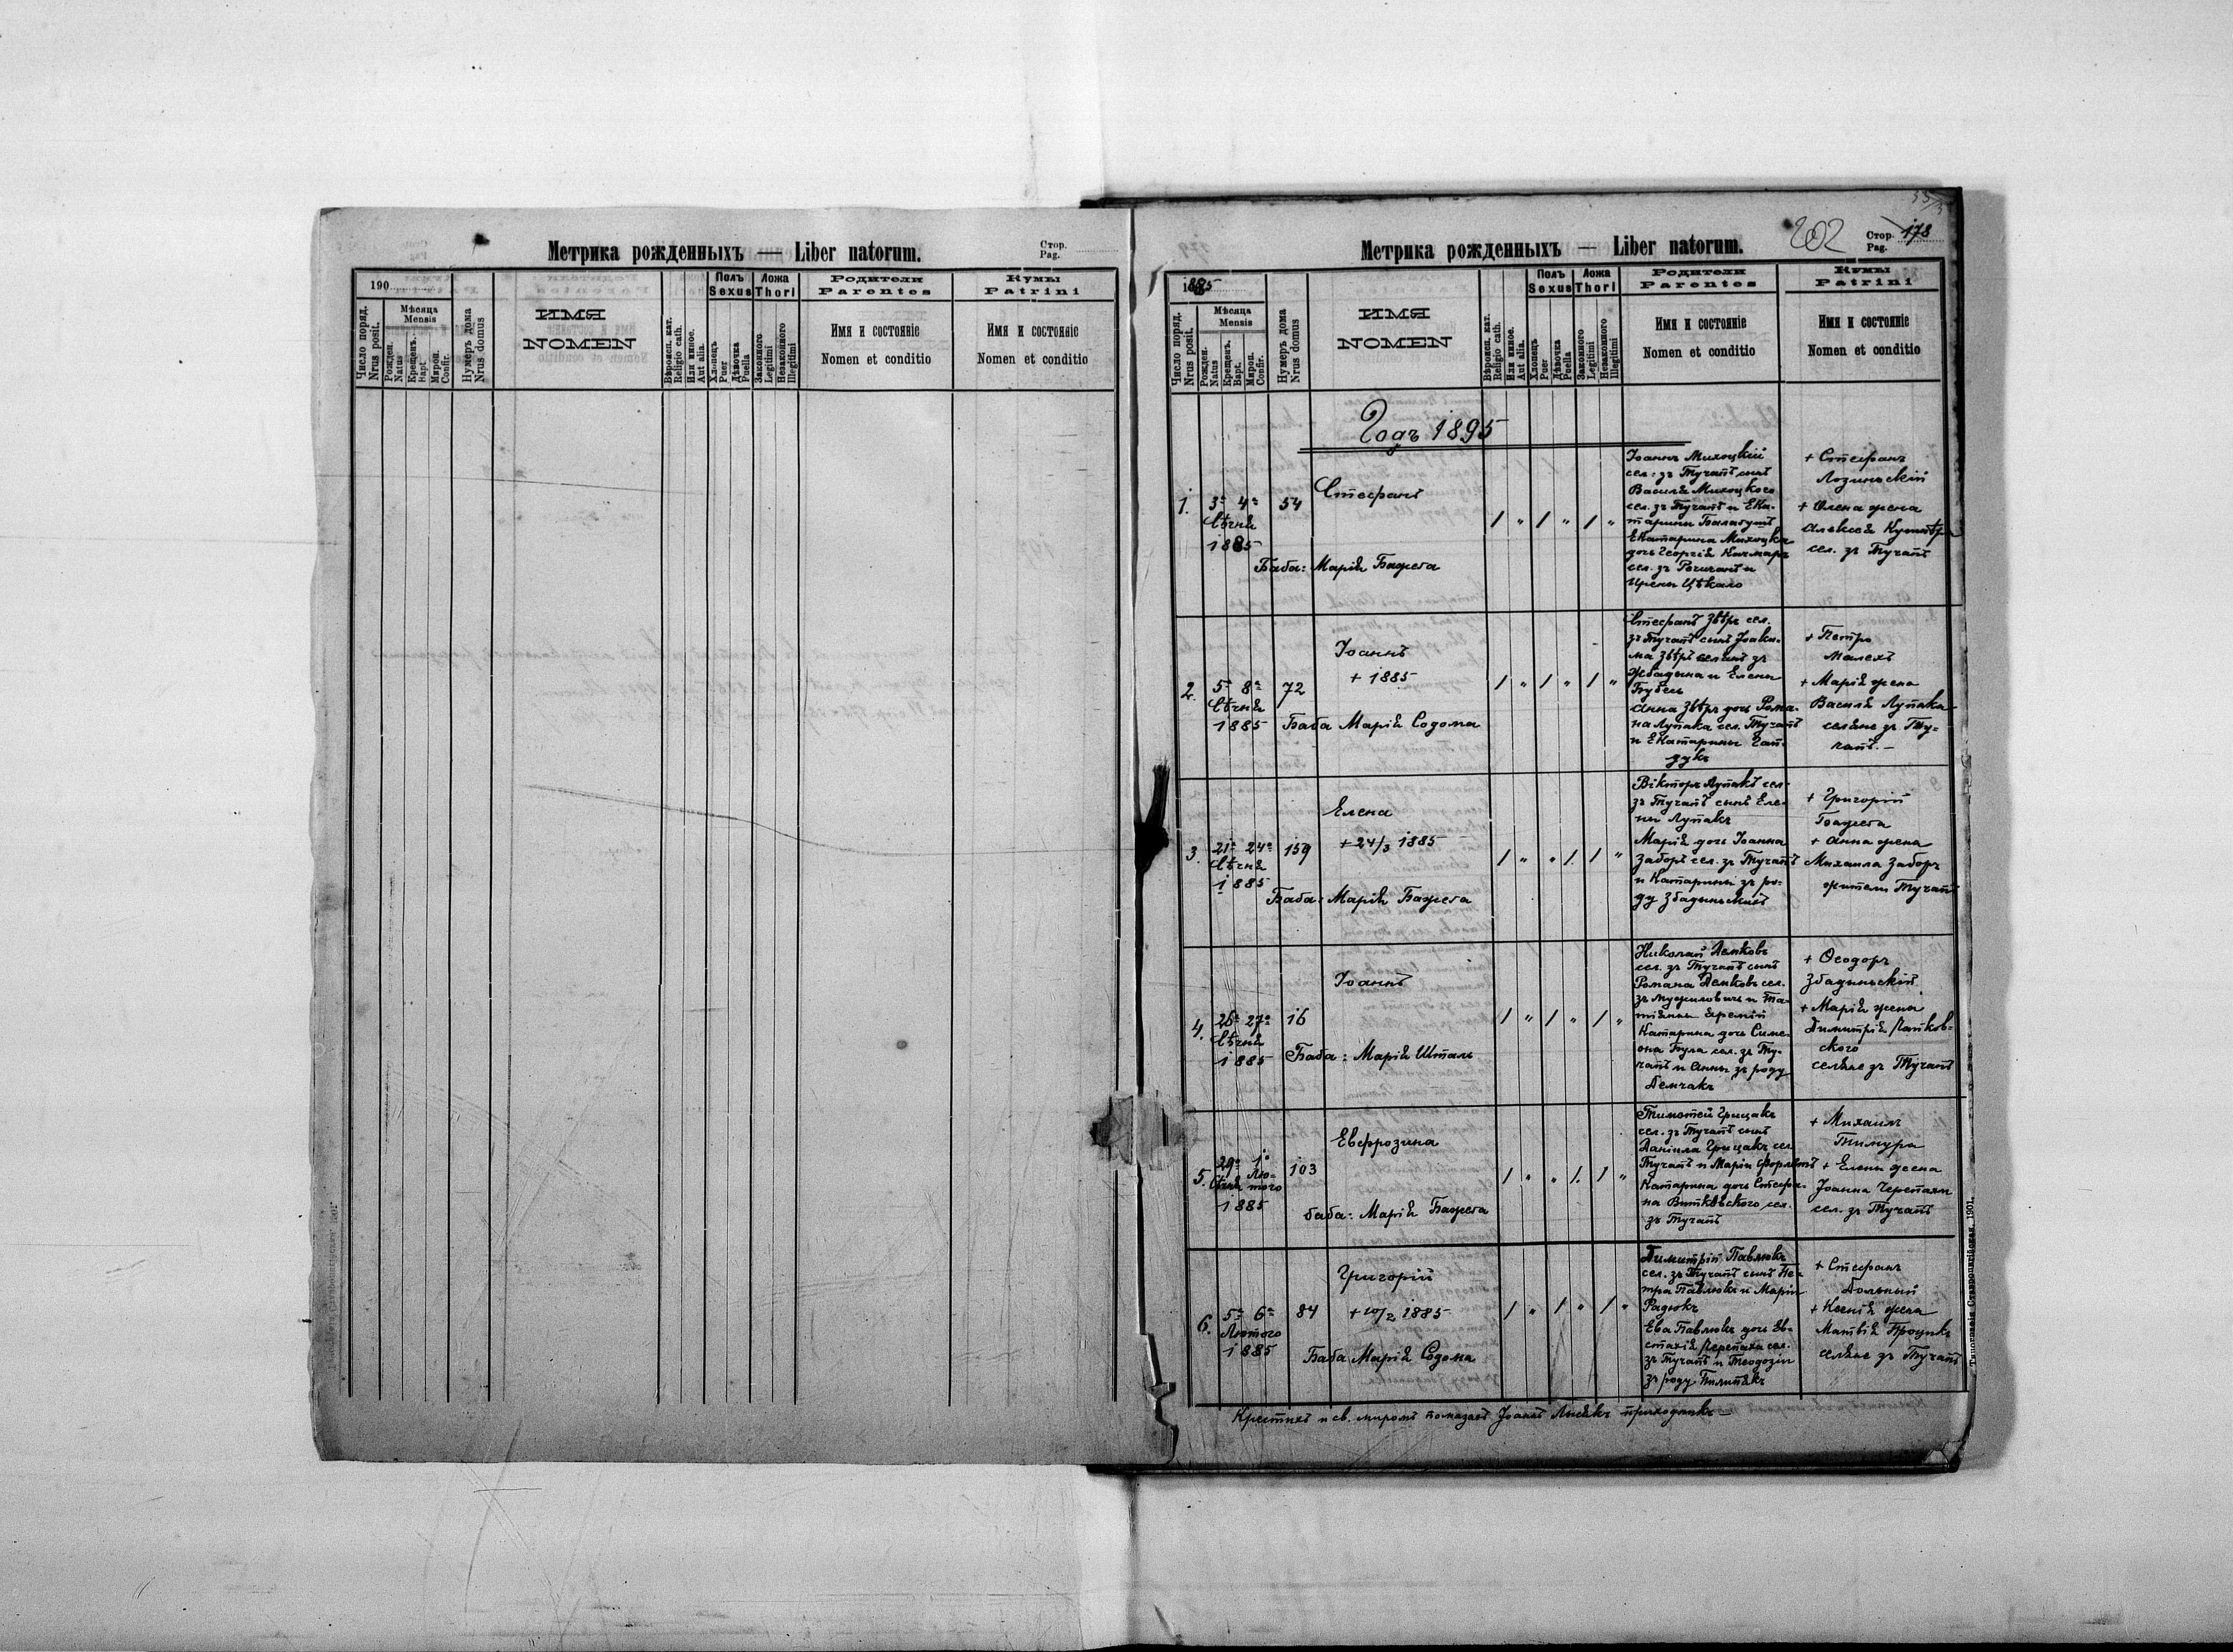 Метрика рожденныхъ — Liber natorum.
Стор.
Pag.
190
Число поряд.
Nrus posit.
Мѣсяца
Mensis
Рожден.
Natus
Крещенъ.
Bapt.
Мироп.
Confir.
Нумеръ дома
Nrus domus
ИМЯ
NOMEN
Вѣроисп. кат.
Religio cath.
Или иное.
Aut alia.
Полъ
Sexus
Хлопецъ
Puer
Дѣвочка
Puella
Ложа
Thori
Законного
Legitimi
Незаконного
Illegitimi
Родители
Parentes
Имя и состоянiе
Nomen et conditio
Кумы
Patrini
Имя и состоянiе
Nomen et conditio
Метрика рожденныхъ — Liber natorum.
202
Стор.
Pag.
178
1885
Число поряд.
Nrus posit.
Мѣсяца
Mensis
Рожден.
Natus
Крещенъ.
Bapt.
Мироп.
Confir.
Нумеръ дома
Nrus domus
ИМЯ
NOMEN
Вѣроисп. кат.
Religio cath.
Или иное.
Aut alia.
Полъ
Sexus
Хлопецъ
Puer
Дѣвочка
Puella
Ложа
Thori
Законного
Legitimi
Незаконного
Illegitimi
Родители
Parentes
Имя и состоянiе
Nomen et conditio
Кумы
Patrini
Имя и состоянiе
Nomen et conditio
Годъ 1895
1.
3го 4го
Сѣчня
1885
54
Стефанъ
Баба: Марія Бажега
/ " / " / "
сел. зъ Тучапъ сынъ
сел. зъ Тучапъ и Ека-
тарины
Екатарина
дочь Георгія
сел. зъ
Ирены Цѣкало
+ Стефанъ
Лозинскій
+ Олена жена
Алексѣя
сел. зъ Тучапъ
2.
5 8го
Сѣчня
1885
72
Іоаннъ
+ 1885
Баба Марія Содома
/ " / " / "
Стефанъ Звѣръ сел.
зъ Тучапъ сынъ Іоаки-
ма Звѣръ селянъ зъ
и Елены
Анна Звѣръ дочь Рома-
на Лупака сел. Тучапъ
и Екатарины Гай-
дукъ
+ Петро
Малехъ
+ Марія жена
Василя Лупака
селяне зъ Ту-
чапъ. —
3.
21го 24го
Сѣчня
1885
159
Елена
+ 24/3 1885
Баба: Марія Бажега
/ " " / / "
Вікторъ Лупакъ сел.
зъ Тучапъ сынъ Еле-
ны Лупакъ
Марія дочь Іоанна
Заборъ сел. зъ Тучапъ
и Катарины зъ ро-
ду
+ Григорій
Бажега
+ Анна жена
Михаила Заборъ
жители Тучапъ
4.
26го 27го
Сѣчня
1885
16
Іоаннъ
Баба: Марія Шталь
/ " / " / "
Николай
сел. зъ Тучапъ сынъ
Романа
зъ Мужиловичъ и Та-
тіанны Яремій
Катарина дочь Симе-
она сел. зъ Ту-
чапъ и Анны зъ роду
Демчакъ
+ Ѳеодоръ
Збадыньскій
+ Марія жена
Димитрія
ского
селяне зъ Тучапъ
5.
29го 1го
Сѣчня Лю-
того
1885
103
Евфрозина
баба: Марія Бажега
/ " " / / "
Тимотей Грицакъ
сел. зъ Тучапъ сынъ
Даніила Грицакъ сел.
Тучапъ и Маріи
Катарина дочь Стефа-
на Витковского сел.
зъ Тучапъ
+ Михаилъ
Тимура
+ Елены жена
Іоанна Черепахи
сел. зъ Тучапъ
6.
5го 6го
Лютого
1885
84
Григорій
+ 10/2 1885
Баба Марія Содома
/ " / " / "
Димитрій Павлюкъ
сел. зъ Тучапъ сынъ Пе-
тра Павлюкъ и Маріи
Радюкъ
Ева Павлюкъ дочь Ев-
стахія Черепаха сел.
зъ Тучапъ и Теодозіи
зъ роду Пилипякъ
+ Стефанъ
Дольный
+ Ксенія жена
Матвія Процикъ
селяне зъ Тучапъ
Крестилъ и св. миромъ помазалъ Іоаннъ Лысякъ приходникъ
Типографія Ставропигійская, 1901.